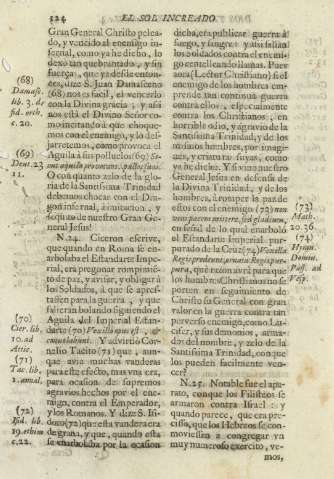 124 EL SOL INCREADO.
Gran General Christo pelea-
do, y vencido al enemigo in-
fernal, como ya he dicho, lo
dexò tan quebrantado, y sin
fuerça, que ya desde enton-
ces, dize S. Juan Damasceno
(68) nos es facil, el vencerlo
con la Divina gracia; y assi
nos està el Divino Señor co-
mo incitando à que choque-
mos con el enemigo, y lo des-
jarretemos, como provoca el
Aguila à sus polluelos (69) Si-
cut aquila provocans pullos suos.
O con quanto zelo de la glo-
ria de la Santissima Trinidad
debemos chocar con el Dra-
gon infernal, à imitacion, y
sequito de nuestro Gran Ge-
neral Jesus!
N. 24. Ciceron escrive,
que quando en Roma se en-
arbolaba el Estandarte Impe-
rial, era pregonar rompimiẽ-
to de paz, y avisar, y obligar à
los Soldados, à que se apres-
tassen para la guerra, y que
saliesen bolando siguiendo el
Aguila del Imperial Estan-
darte (70) Vexillũ opus est, &
convolabunt. Y advirtiò Cor-
nelio Tacito (71) que, aun-
que avia muchas vanderas
para este efecto, mas vna era,
para ocasion de supremos
agravios hechos por el ene-
migo, contra el Emperador,
y los Romanos. Y dize S. Isi-
doro (72) que esta vandera era
de grana, y que, quando esta
se enarbolaba por la ocasion
(68)
Damasc.
lib. 3. de
fid. orth.
c. 20.
(69)
Deut. 32
11.
(70)
Cicer. lib.
10. ad
Attic.
(71)
Tac. lib.
2. annal.
(72)
Isid. lib.
c. 22.
dicha, era publicar guerra à
fuego, y sangre; y assi salian
los Soldados contra el enemi-
go centelleando llamas. Pues
aora (Lector Christiano) si el
enemigo de los hombres em-
prende tan continua guerra
contra ellos, especialmente
contra los Christianos, en
horrible odio, y agravio de la
Santissima Trinidad, y de los
mismos hombres, por ima-
genes, y criaturas suyas, como
ya he dicho. Y si vino nuestro
Gran General Jesus en defensa de
la Divina Trinidad, y de los
hombres, à romper la paz de
estos con el enemigo (73) non
veni pacem mittere, sed gladium,
en señal de lo qual enarbolò
el Estandarte Imperial pur-
purado de la Cruz (74) Vexilla
Regis prodeunt, ornata Regis pur-
pura, què razon avrà para que
los hombres Christianos no se
porten en seguimiento de
Christo su General con gran
valor en la guerra contra tan
perverso enemigo, como Lu-
cifer, y sus demonios, arma-
dos del nombre, y zelo de la
Santissima Trinidad, con que
los pueden facilmente ven-
cer?
N. 25. Notable fue el apa-
rato, conque los Filisteos se
armaron contra Israel: y
quando parece, que era pre-
cissa, que los Hebreos se con-
moviessen à congregar vn
muy numeroso exercito, ve-
mos,
(73)
Math.
20. 36.
(74)
Hymn.
Domin.
Pass. ad
Vesp.